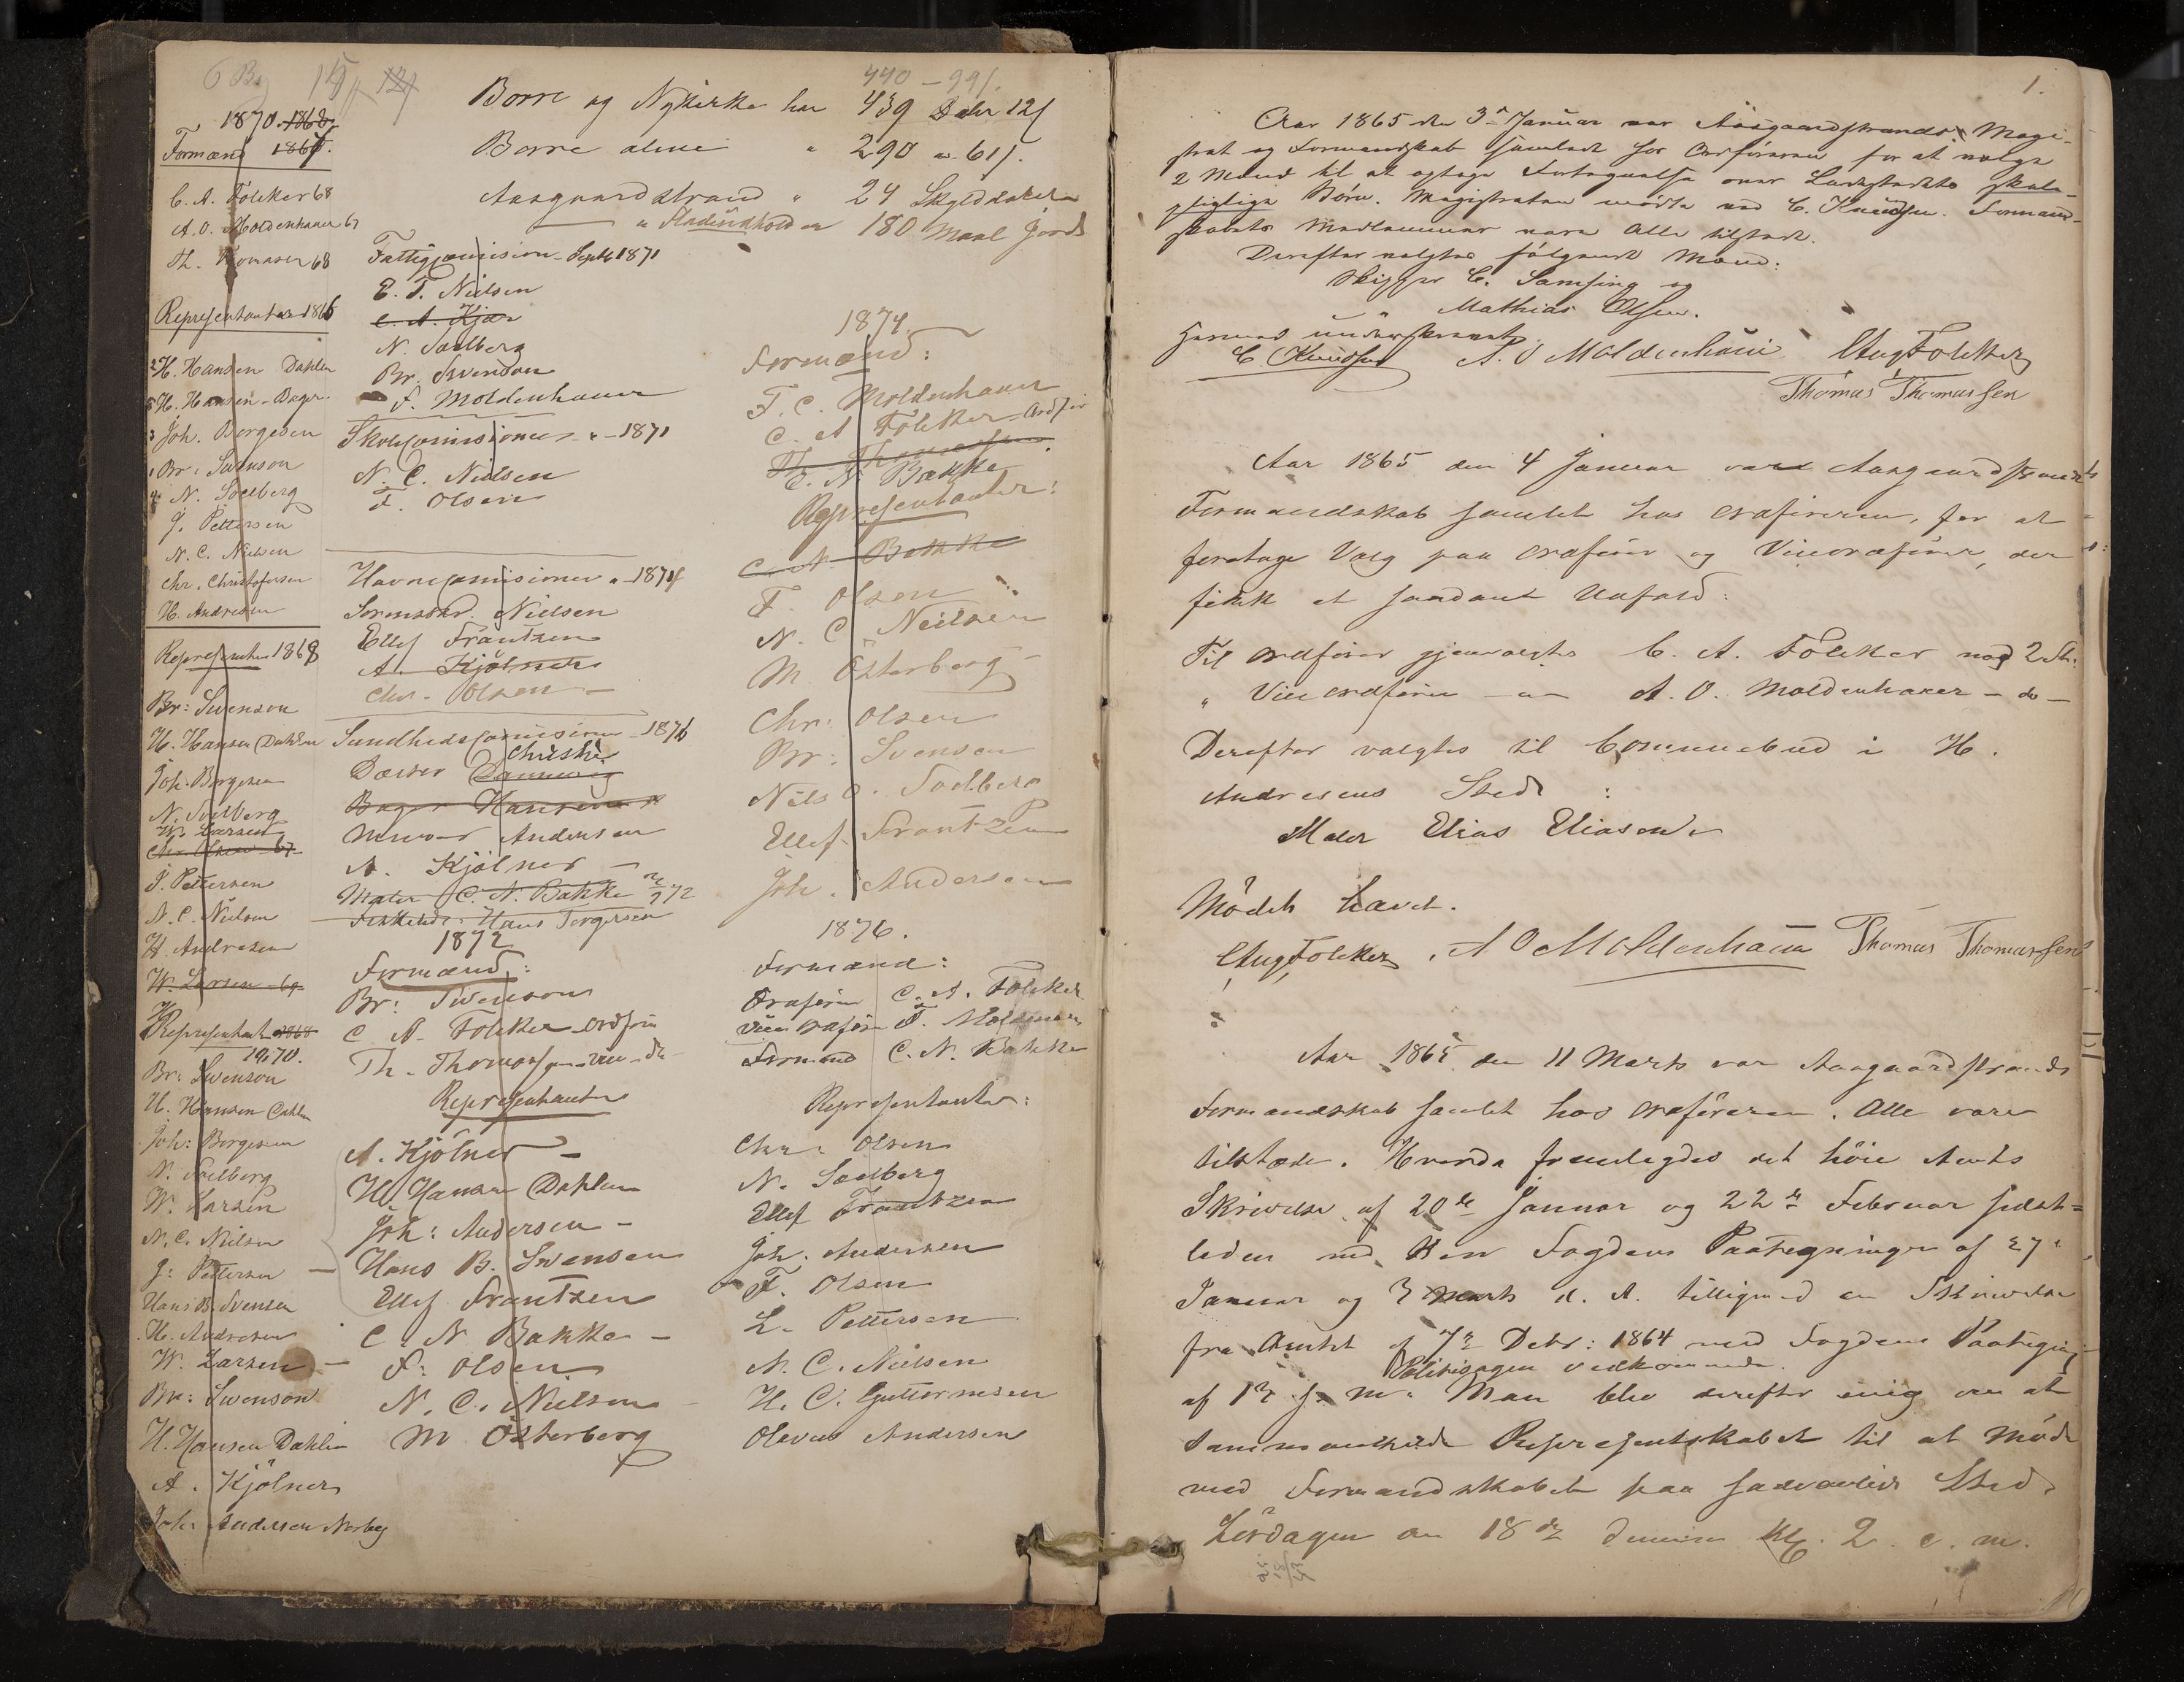 440 - 991.
Borre og Nykirke har 439 Daler 121
Borre alene " 290 " 611.
Aasgaardstrand " 24 Skylddaler
" Fladeindhold er 180 Maal Jord
1870. 1868.
Formænd 1867.
C. A. Fölcker 68
A. O. Moldenhauer 67
Th. Thomasen 68
Representanter 1866
H. Hansen Dahlen
H. Hansen - Bager.
Joh. Borgesen
Br: Swenson
N. Soelberg
J. Pettersen
N. C. Nielsen
Chr. Christofersen
H. Andresen
Representanter 1868
Br: Swenson
H. Hansen Dahlen
Joh. Borgesen
N. Soelberg
W. Larsen
Chr. Olsen - 67
J. Pettersen
N. C. Nielsen
H. Andresen
W. Larsen - 69
Representanter 1868
1870.
Br: Swenson
H. Hansen Dahlen
Joh: Borgesen
N. Soelberg
W. Larsen
N. C. Nielsen
J: Pettersen
Hans B. Svensen
H. Andresen
W. Larsen
Br: Swenson
H. Hansen Dahlen
A. Kjölner
Joh: Andersen Norbeg
Fattigcomision Septb 1871
E. T. Nielsen
C. A. Kjær
N. Soelberg
Br. Svenson
F. Moldenhauer
Skolecomisionen " - 1871
N. C. Nielsen
F. Olsen
Havnecomisionen " - 1874
Nielsen
Ellef Frantzen
A. Kjölner
Chr. Olsen
Sundhedscomisionen - 1876
Christie
Bager Hansen
Murer Andersen
A. Kjölner
Maler C. N. Bakke
Hans Torgersen
1872
Formænd:
Br: Swenson
C A. Fölcker Ordförer
Th. Thomassen vice do
Representanter
A. Kjölner
H. Hansen Dahlen
Joh: Andersen
Hans B. Svensen
Ellef Frantzen
C. N. Bakke
F: Olsen
N. C. Nielsen
M Österberg
1874.
Formænd:
F. C. Moldenhauer
C. A Fölcker Ordför
Th. Thomassen
C. N. Bakke
Representanter:
C. N. Bakke
F. Olsen
N. C. Neilsen
M. Österberg
Chr: Olsen
Br: Svenson
Nils O. Soelberg
Ellef Frantzen
Joh. Andersen
1876.
Formænd:
Ordförer C. A. Fölcker
Viceordförer F. Moldenhauer
Formand C. N. Bakke
Representanter:
Chr: Olsen
N. Soelberg
Ellef Frantzen
Joh. Andersen
F. Olsen
L. Pettersen
N. C. Nielsen
H. C. Guttormsen
Olavus Andersen
1.
Aar 1865 den 3die Januar var Aasgaardstrands Magi-
strat og Formandskab samlet hos Ordföreren for at vælge
2 Mænd til at optage Fortegnelse over Ladestedets skole-
pligtige Börn. Magistraten mödte ved C. Knudsen. Formand-
skabets Medlemmer vare Alle tilstede.
Derefter valgtes fölgende Mænd:
Skipper C. Samsing og
Mathias Olsen.
Hermed underskrevet
C. Knudsen A. O Moldenhauer C Aug Fölcker
Thomas Thomassen
Aar 1865 den 4 Januar vard Aasgaardstrands
Formandskab samlet hos Ordföreren, for at
foretage Valg paa Ordförer og Viceordförer, der
fikk et saadant Udfald:
Til Ordförer gjenvalgtes C. A. Fölcker med 2 St.
" Viceordförer - " - A. O. Moldenhauer - do -
Derefter valgtes til Communebud i H.
Andresens Sted:
Maler Elias Eliasen.
Mödet hævet.
C Aug Fölcker, A O Moldenhauer Thomas Thomassen
Aar 1865 den 11 Marts var Aasgaardstrands
Formandskab samlet hos Ordföreren. Alle vare
tilstæde. Hvorda fremlagdes det höie Amts
Skrivelse af 20de Januar og 22de Februar sidst-
leden med Herr Fogdens Paategninger af 27de
Januar og 3 Marts d. A. tilligemed en Skrivelse
fra Amtet af 7de Debr: 1864 med Fogdens Paategning
Politisagen vedkommende.
af 13 s. m. Man blev derefter enig om at
sammenkalde Representskabet til at möde
med Formandskabet paa sædvanlig Sted
Lördagen den 18de dennes Kl. 2 e. m.